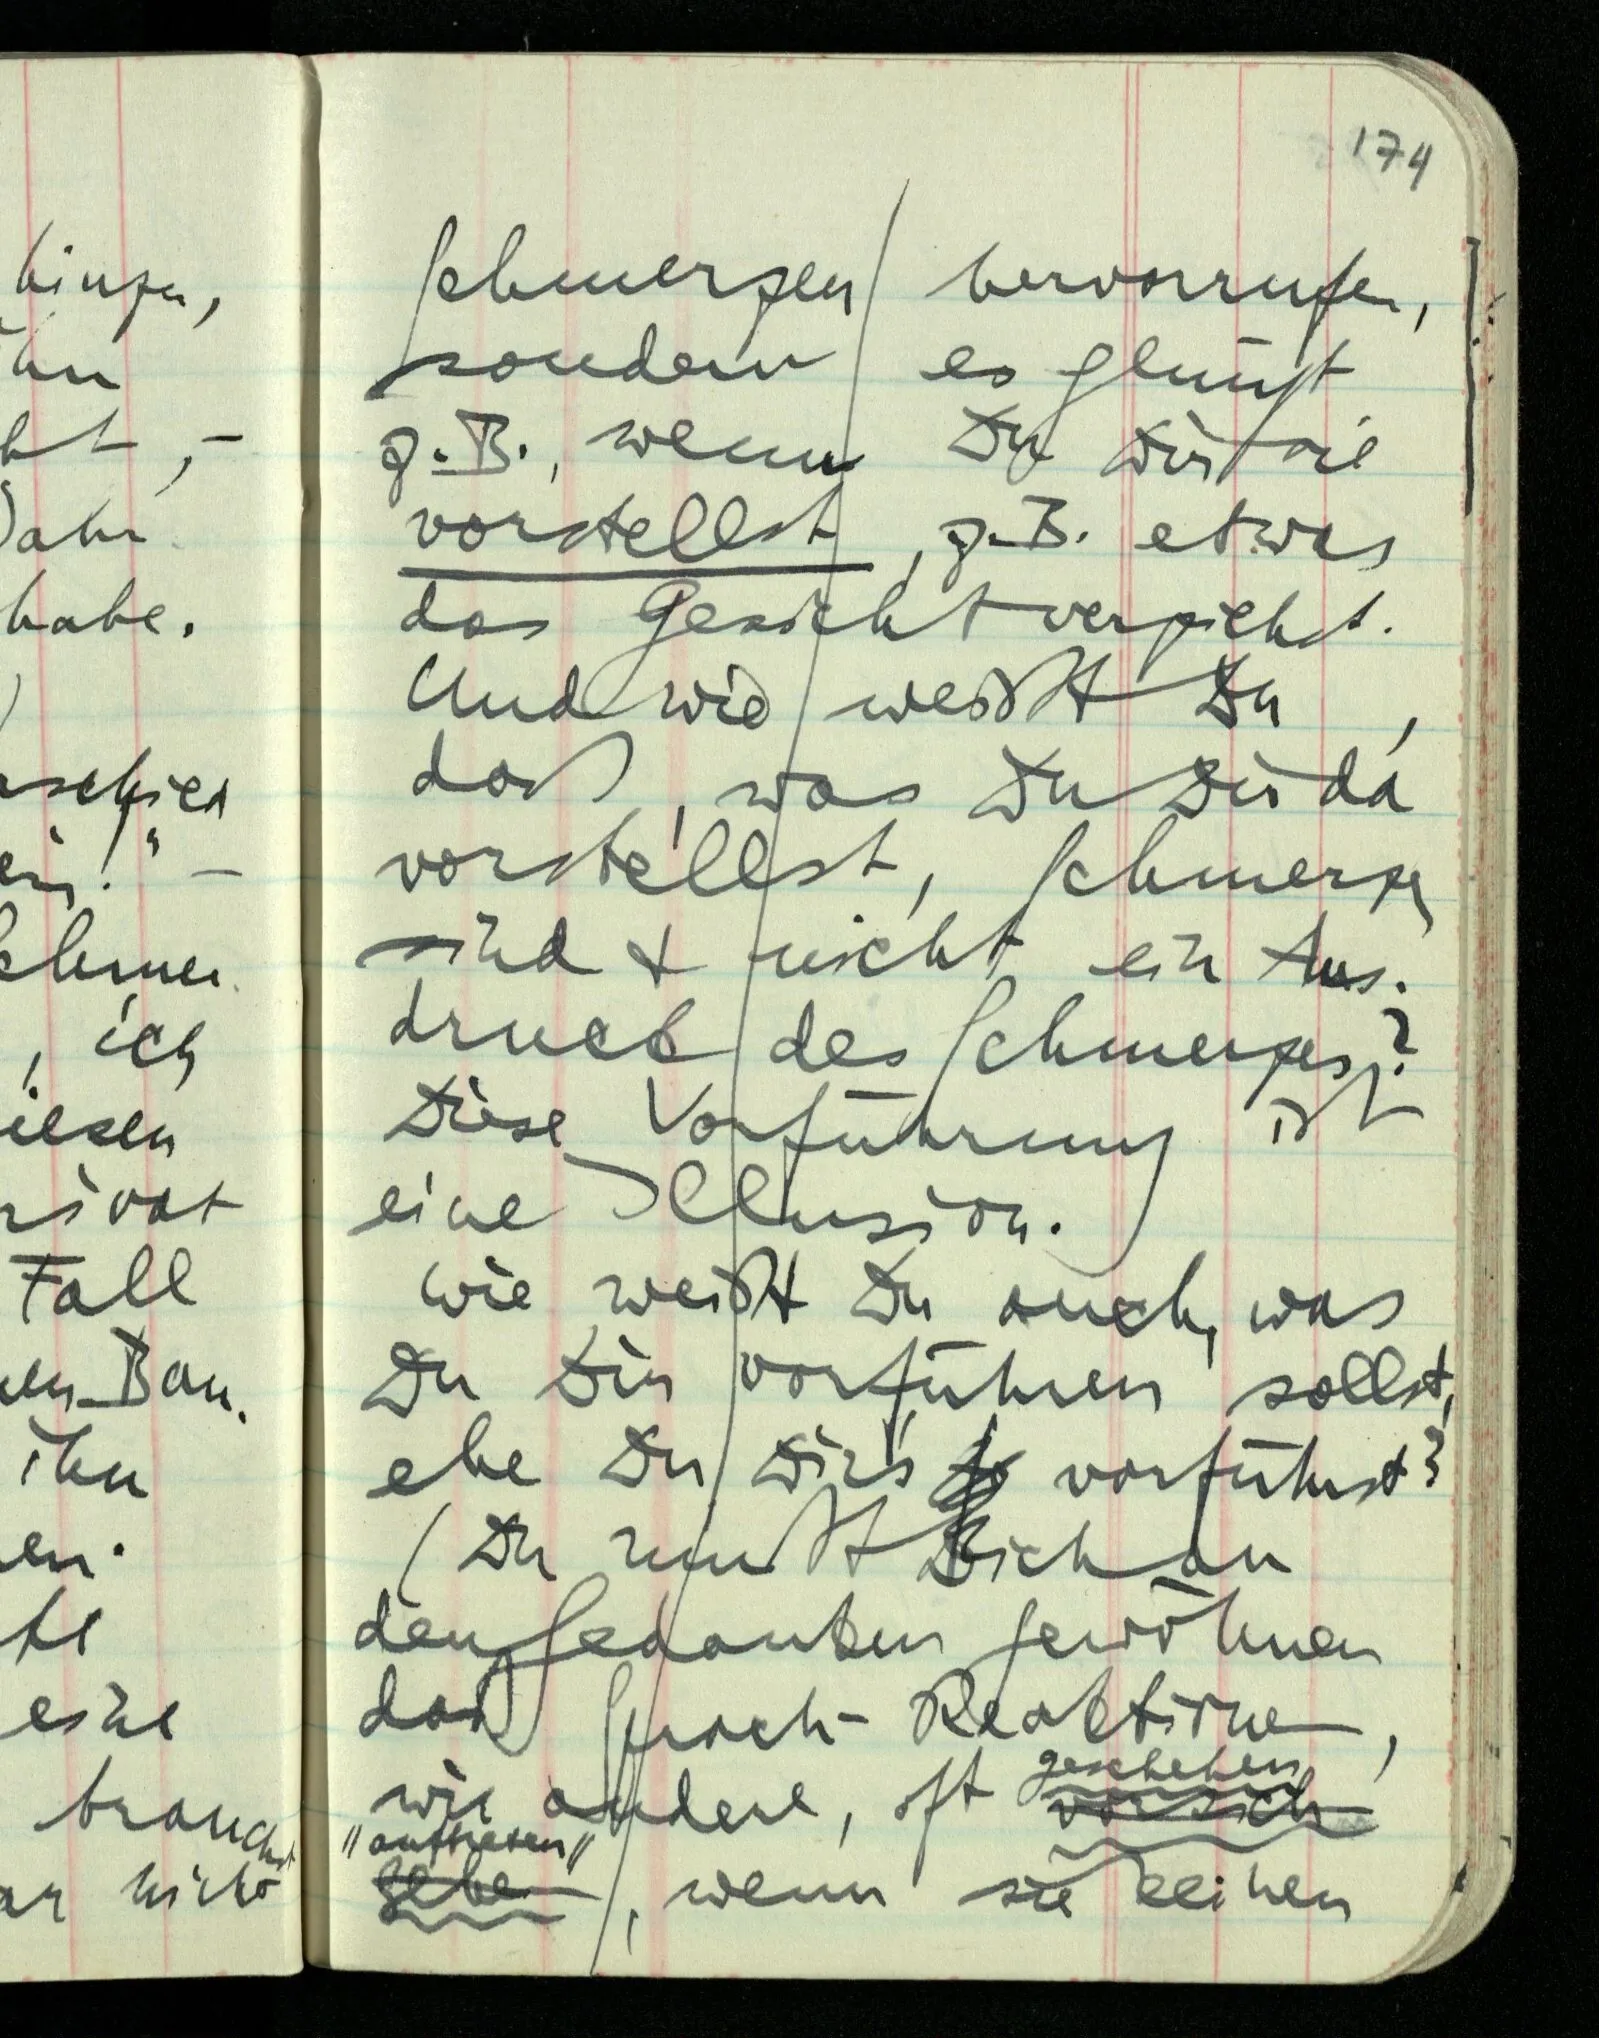 hinzu,
ihn
ht, –
Jahr
habe.
rschied
ein!" –
Schmer
, ich
diesen
privat
Fall
nen Bau.
ihn
en.
te
eine
brauchst
ar nicht
174
Schmerzen hervorrufen,
sondern es glückt
z.B., wenn Du Dir sie
vorstellst, z.B. etwas
das Gesicht verziehst.
Und wie weißt Du,
daß, was Du Dir da
vorstellst, Schmerzen
sind & nicht ein Aus-
druck des Schmerzes?
Diese Vorführung ist
eine Illusion.
Wie weißt Du auch, was
Du Dir vorführen sollst,
ehe Du Dir's vorführst?
(Du mußt Dich an
den Gedanken gewöhnen
daß Sprach-Reaktionen,
geschehen
wie andere, oft vor sich
"auftreten"
gehen, wenn sie keinen